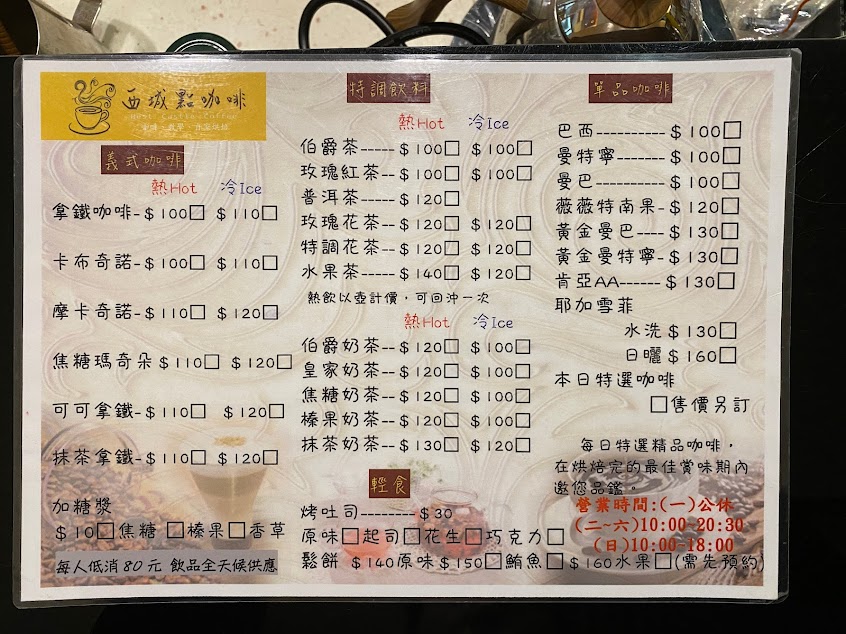 西城點咖啡
義式咖啡
熱Hot 冷Ice
拿鐵咖啡-$100□ $110□
卡布奇諾-$100□ $110□
摩卡奇諾-$110□ $120□
焦糖瑪奇朵$110□ $120□
可可拿鐵-$110□ $120□
抹茶拿鐵-$110□ $120□
加糖漿
$10□焦糖 □榛果□香草
每人低消80元 飲品全天候供應
特調飲料
熱Hot 冷Ice
伯爵茶-----$100□ $100□
玫瑰紅茶--$100□ $100□
普洱茶-----$120□
玫瑰花茶--$120□ $120□
特調花茶--$120□ $120□
水果茶-----$140□ $120□
熱飲以壺計價，可回沖一次
熱Hot 冷Ice
伯爵奶茶--$120□ $100□
皇家奶茶--$120□ $100□
焦糖奶茶--$120□ $100□
榛果奶茶--$120□ $100□
抹茶奶茶--$130□ $120□
輕食
烤吐司--------$30
原味□起司□花生□巧克力□
鬆餅 $140原味$150□鮪魚□$160水果□(需先預約)
單品咖啡
巴西----------$100□
曼特寧-------$100□
曼巴----------$100□
薇薇特南果-$120□
黃金曼巴----$130□
黃金曼特寧-$130□
肯亞AA------$130□
耶加雪菲
水洗$130□
日曬$160□
本日特選咖啡
□售價另訂
每日特選精品咖啡，
在烘焙完的最佳賞味期內
邀您品鑑。
營業時間:(一)公休
(二~六)10:00-20:30
(日)10:00-18:00